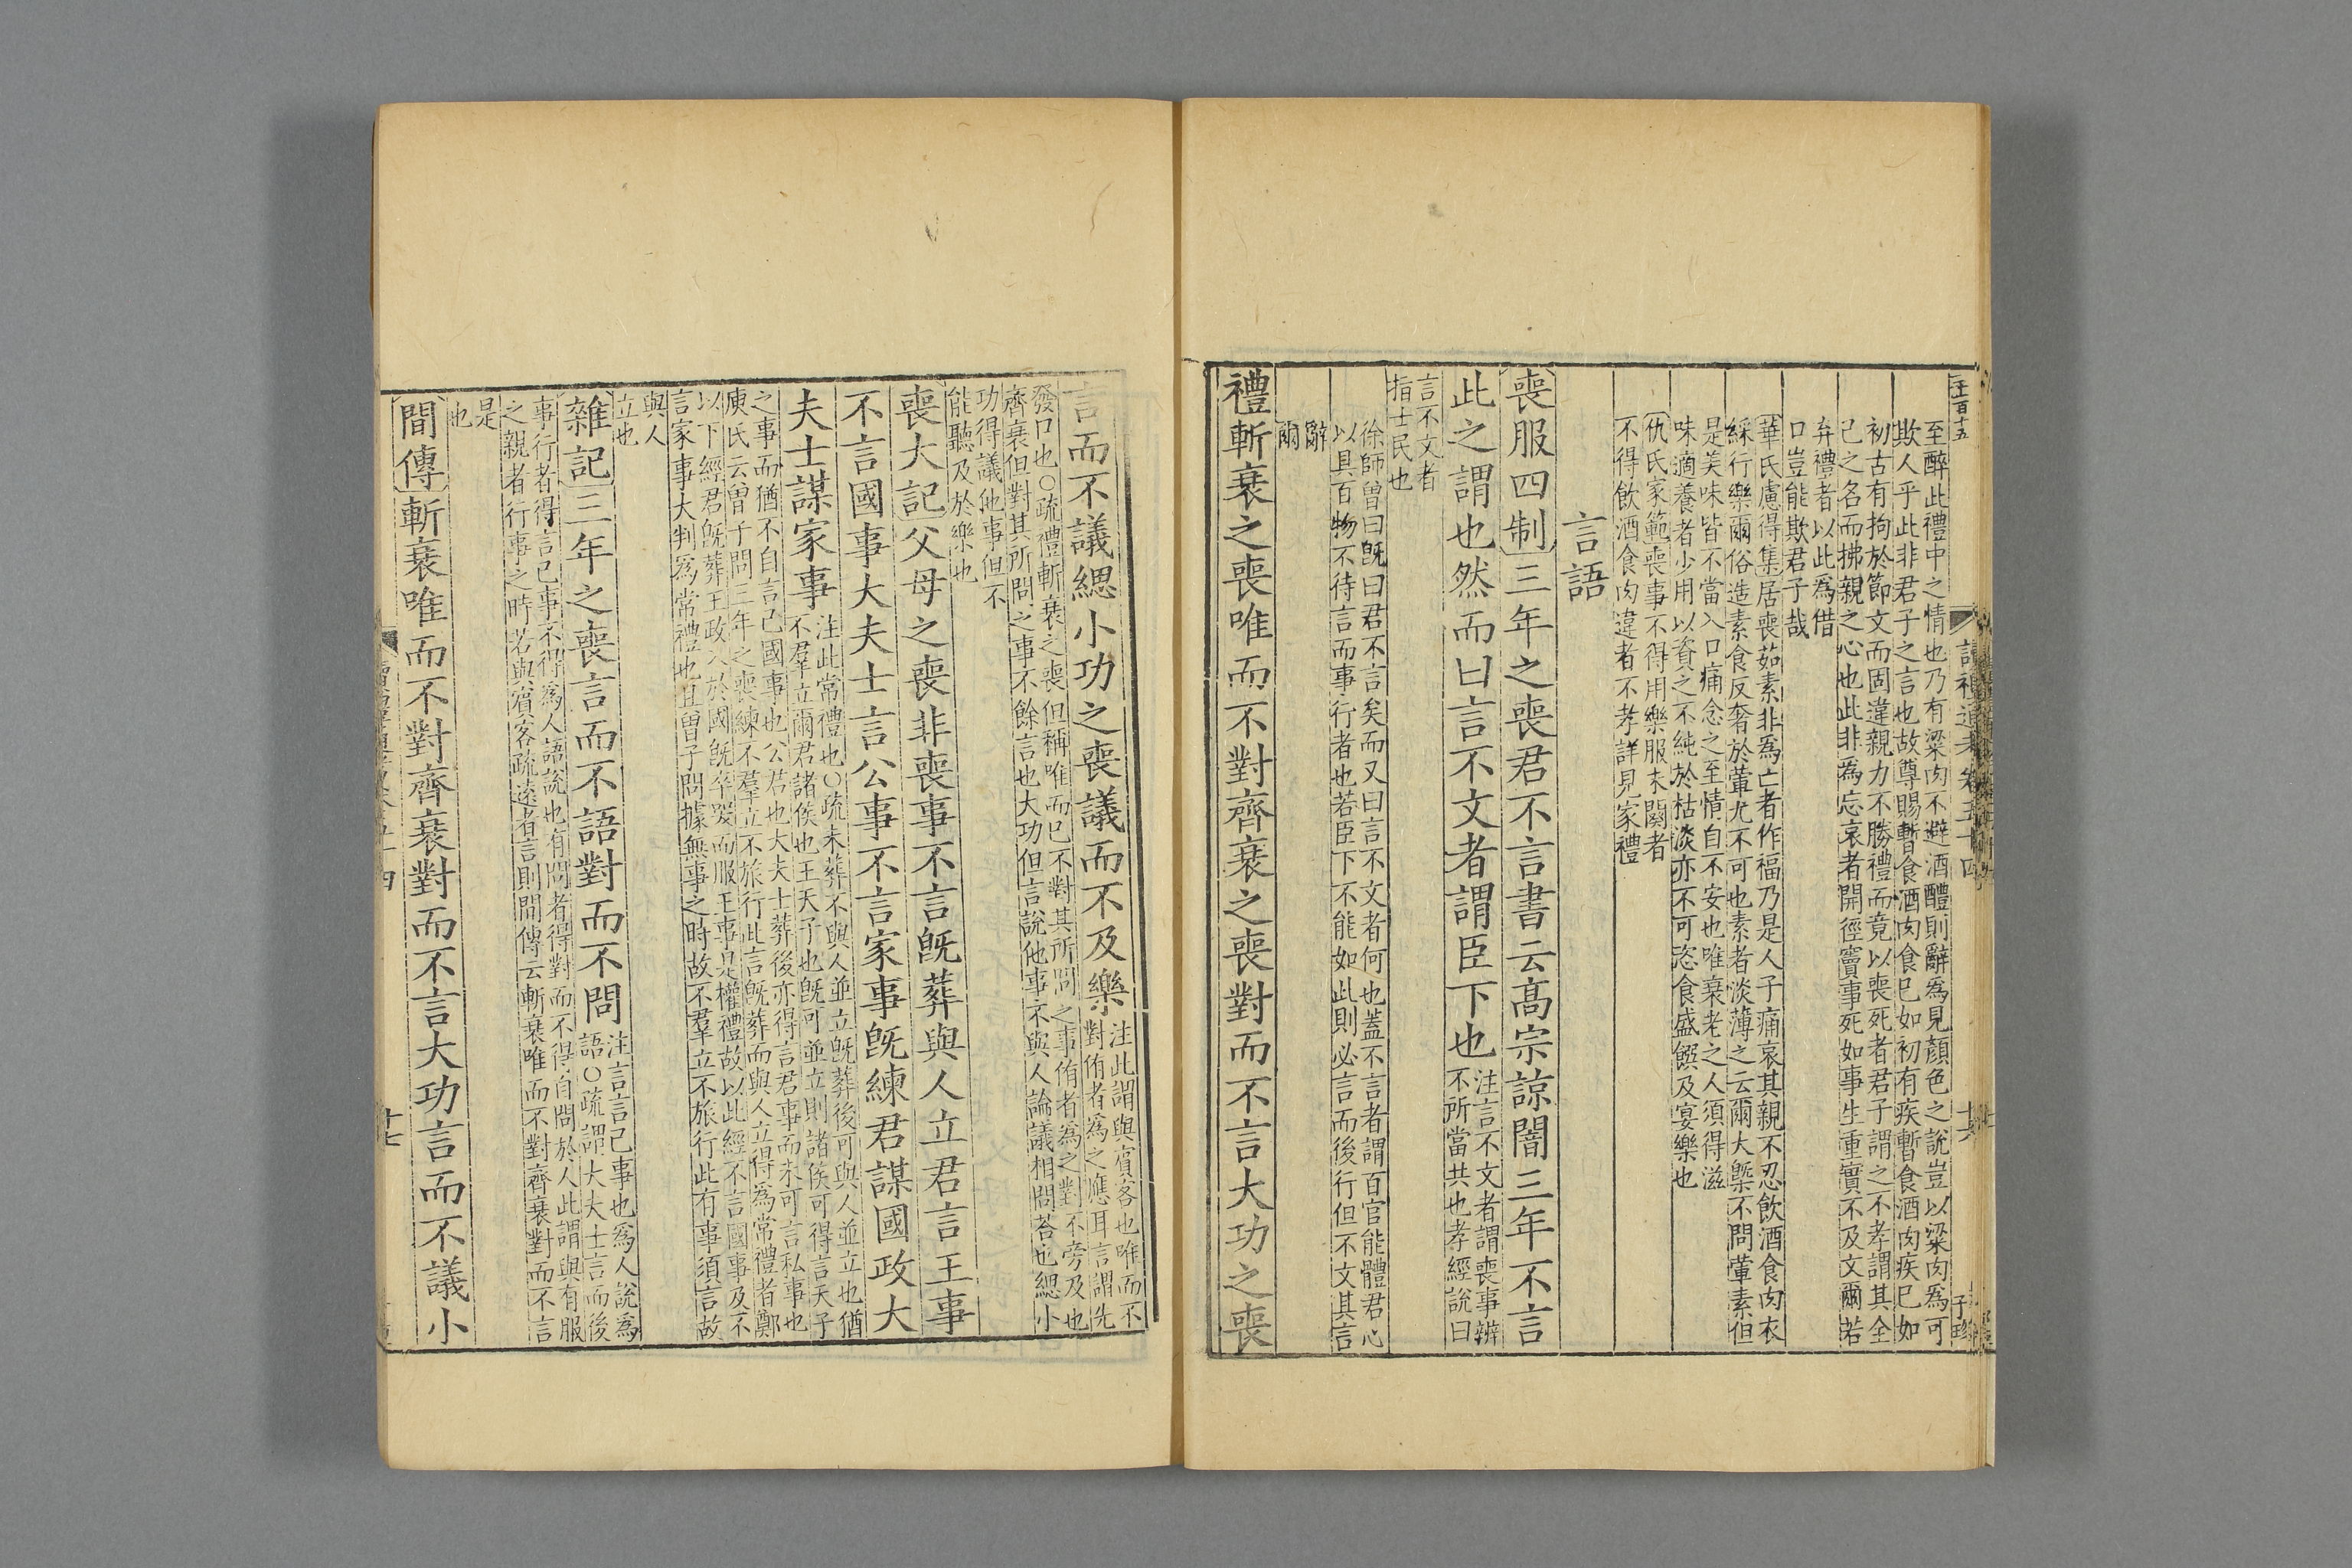 至醉此禮中之情也乃有粱肉不避酒醴則辭爲見顏色之說豈以粱肉爲可
欺人乎此非君子之言也故尊賜暫食酒肉食已如初有疾暫食酒肉疾已如
初古有拘於節文而固違親力不勝禮而竟以喪死者君子謂之不孝謂其全
己之名而拂親之心也此非爲忘哀者開徑竇事死如事生重實不及文爾若
弃禮者以此爲借
口豈能欺君子哉
華氏慮得集居喪茹素非爲亡者作福乃是人子痛哀其親不忍飲酒食肉衣
綵行樂爾俗造素食反奢於葷尤不可也素者淡薄之云爾大槩不問葷素但
是美味皆不當入口痛念之至情自不安也唯衰老之人須得滋
味適養者少用以資之不純於枯淡亦不可恣食盛饌及宴樂也
仇氏家範喪事不得用樂服未闋者
不得飲酒食肉違者不孝詳見家禮
言語
喪服四制三年之喪君不言書云高宗諒闇三年不言
此之謂也然而曰言不文者謂臣下也
注言不文者謂喪事辨
不所當共也孝經說曰
言不文者
指士民也
徐師曾曰旣曰君不言矣而又曰言不文者何也蓋不言者謂百官能體君心
以具百物不待言而事行者也若臣下不能如此則必言而後行但不文其言
辭
爾
禮斬衰之喪唯而不對齊衰之喪對而不言大功之喪
言而不議緦小功之喪議而不及樂
注此謂與賓客也唯而不
對侑者爲之應耳言謂先
發口也○疏禮斬衰之喪但稱唯而已不對其所問之事侑者爲之對不旁及也
齊衰但對其所問之事不餘言也大功但言說他事不與人論議相問荅也緦小
功得議他事但不
能聽及於樂也
喪大記父母之喪非喪事不言旣葬與人立君言王事
不言國事大夫士言公事不言家事旣練君謀國政大
夫士謀家事
注此常禮也○疏未葬不與人並立旣葬後可與人並立也猶
不羣立爾君諸侯也王天子也旣可並立則諸侯可得言天子
之事而猶不自言己國事也公君也大夫士葬後亦得言君事而未可言私事也
庾氏云曾子問三年之喪練不羣立不旅行此言旣葬而與人立得爲常禮者鄭
以下經君旣葬王政入於國旣卒哭而服王事是權禮故以此經不言國事及不
言家事大判爲常禮也且曾子問據無事之時故不羣立不旅行此有事須言故
與人
立也
雜記三年之喪言而不語對而不問
注言言己事也爲人說爲
語○疏謂大夫士言而後
事行者得言己事不得爲人語說也有問者得對而不得自問於人此謂與有服
之親者行事之時若與賓客疏遠者言則間傳云斬衰唯而不對齊衰對而不言
是
也
間傳斬衰唯而不對齊衰對而不言大功言而不議小